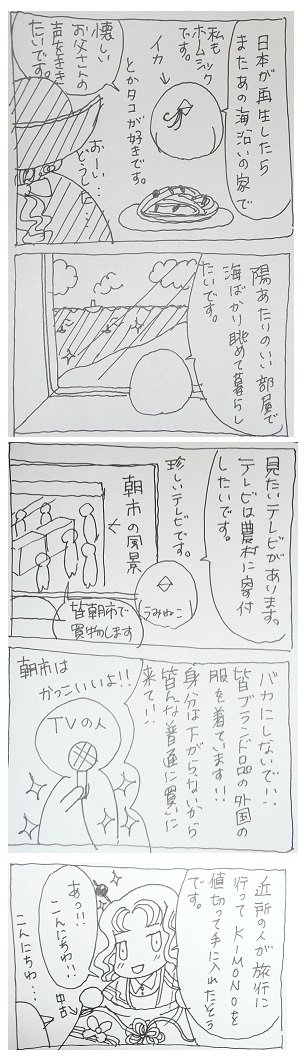 日本が再生したら
またあの海沿いの家で
私も
ホームシック
です。
イカ
とかタコが好きです。
懐しい
お父さんの
声をきき
たいです。
おーい…
どうした…
陽あたりのいい部屋で
海ばかり眺めて暮らし
たいです。
見たいテレビがあります。
テレビは農村に寄付
したいです。
珍しいテレビです。
朝市の風景
うみねこ
皆朝市で
買物します
バカにしないで!!
皆ブランド品の外国の
服を着ています!!
身分は下がらないから
皆んな普通に買いに
来て!!
朝市は
かっこいいよ!!
TVの人
近所の人が旅行に
行ってKIMONOを
値切って手に入れたそう
です。
あっ!!
こんにちわ!!
中古
こんにちわ…